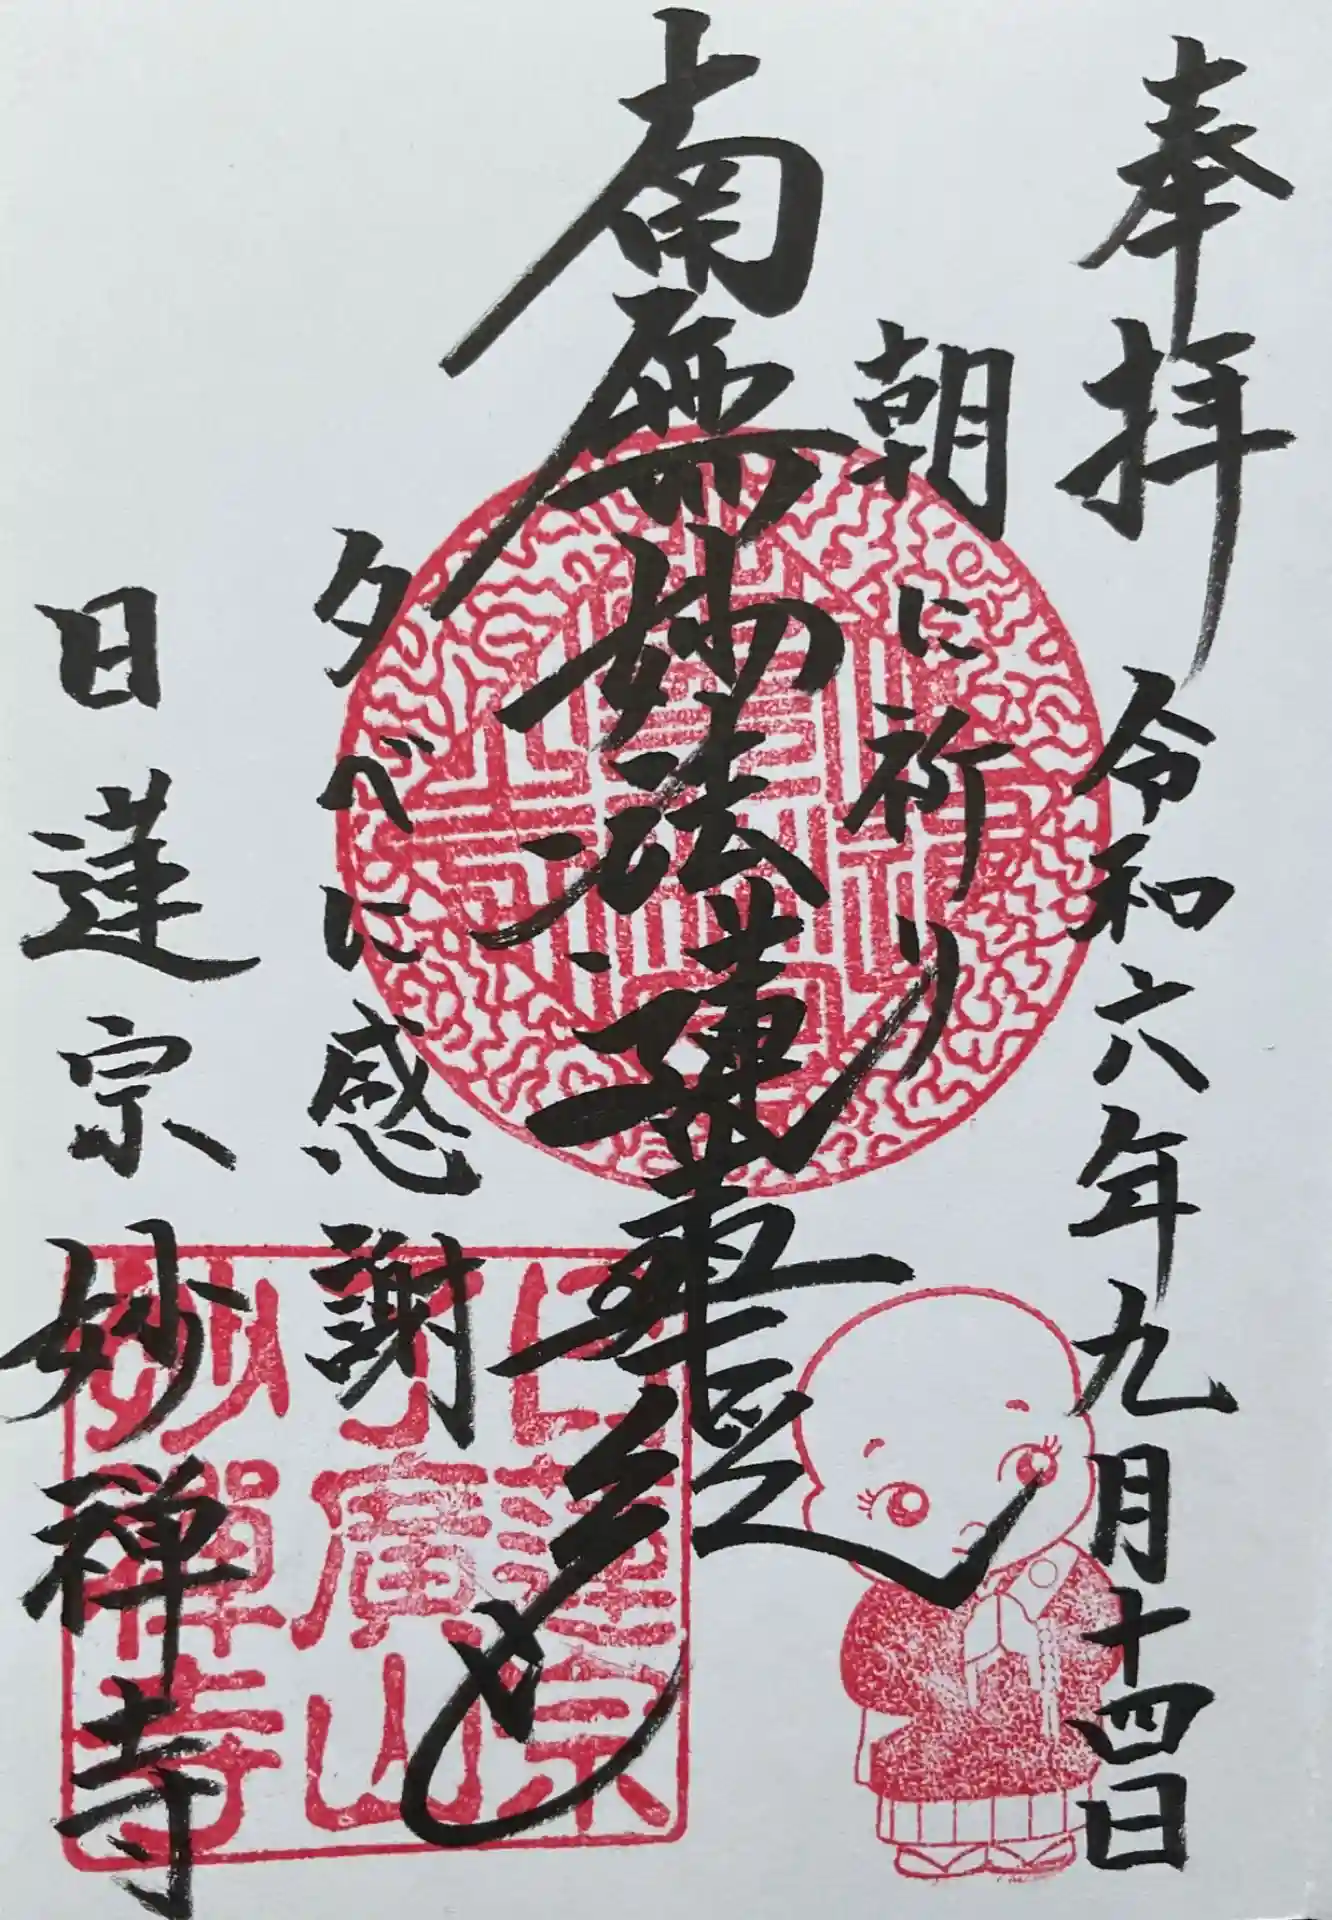 奉拝 令和六年九月十四日
朝に祈り
南無妙法蓮華経
夕べに感謝
日蓮宗 妙禅寺
日蓮宗
廣山
妙禅寺